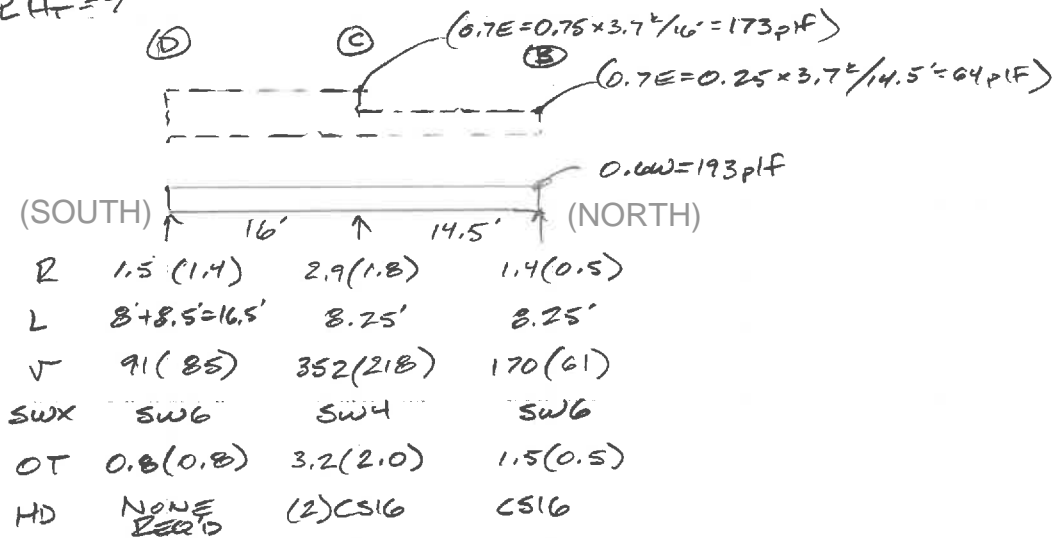 (0.7E=0.75×3.7ᵏ/16'=173plf)
D C B
(0.7E=0.25×3.7ᵏ/14.5'=64plf)
0.6W=193plf
(SOUTH) 16' 14.5' (NORTH)
R 1.5 (1.4) 2.9(1.8) 1.4(0.5)
L 8'+8.5'=16.5' 8.25' 8.25'
v 91(85) 352(218) 170(61)
SWX SW6 SW4 SW6
OT 0.8(0.8) 3.2(2.0) 1.5(0.5)
HD NONE (2)CS16 CS16
REQ'D